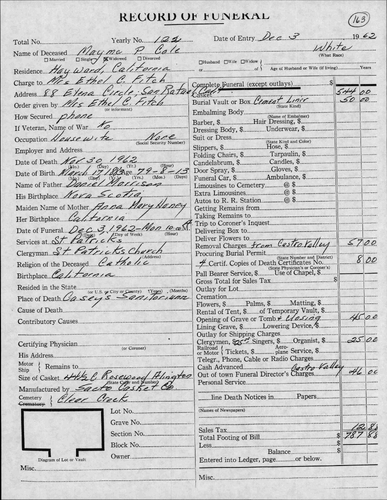 RECORD OF FUNERAL
163
Total No. Yearly No. 122 Date of Entry Dec 3 1962
Name of Deceased Mayme P. Cole White
(What Race)
Married Single Widowed Divorced Husband Wife Widow Age of Husband or Wife (if living) Years
Residence Hayward, California
Charge to Mrs Ethel C. Fitch
Address 88 Elena Circle, San Rafael
Order given by Mrs Ethel C. Fitch
How Secured phone
If Veteran, Name of War No
Occupation Housewife None
(Social Security Number)
Employer and Address
Date of Death Nov 30 1962
Date of Birth March 17 Age 79-8-13
Name of Father Daniel Morrison
His Birthplace Nova Scotia
Maiden Name of Mother Anna Mary Haney
Her Birthplace California
Date of Funeral Dec 3, 1962 - Mon 10
Services at St Patricks
Clergyman St Patricks Church
Religion of the Deceased Catholic
Birthplace California
Resided in the State
(or U.S. or City or County)
Place of Death Caseys Sanitarium
Cause of Death
Contributory Causes
Certifying Physician
His Address
Motor Ship Remains to
Size of Casket Rosewood Arlington
(State Color and Number)
Manufactured by Sacto Casket Co
Cemetery Crematory Clear Creek
Lot No.
Grave No.
Section No.
Block No.
Owner
Diagram of Lot or Vault
Misc.
Complete Funeral (except outlays) $ 544 00
Burial Vault or Box Cement Liner 50 00
(State Kind)
Embalming Body
(Name of Embalmer)
Barber, $ Hair Dressing, $
Dressing Body, $ Underwear, $
Suit or Dress
(State Kind and Color)
Slippers, $ Hose, $
Folding Chairs, $ Tarpaulin, $
Candelabrum, $ Candles, $
Door Spray, $ Gloves, $
Funeral Car, $ Ambulance, $
Limousines to Cemetery @ $
Extra Limousines @ $
Autos to R. R. Station @ $
Getting Remains from
Taking Remains to
Trip to Coroner's Inquest
Delivering Box to
Deliver Flowers to
Removal Charges from Castro Valley 57 00
Procuring Burial Permit
(State Number and District)
4 Certif. Copies of Death Certificates No. 8 00
(State Physician's or Coroner's)
Pall Bearer Service, $ Use of Chapel, $
Gross Total for Sales Tax $
Outlay for Lot
Cremation
Flowers, $ Palms, $ Matting, $
Rental of Tent, $ of Temporary Vault, $
Opening of Grave or Tomb & Closing 45 00
Lining Grave, $ Lowering Device, $
Outlay for Shipping Charges
Clergymen, $25 Singers, $ Organist, $ 25 00
Railroad or Motor $ Tickets, Aeroplane $ Service, $
Telegr., Phone, Cable or Radio Charges
Cash Advanced Castro Valley
Out of Town Funeral Director's Charges 46 00
Personal Service
line Death Notices in Papers
(Names of Newspapers)
Sales Tax 12 88
Total Footing of Bill $ 787 88
Less
Balance $
Entered into Ledger, page or below.
Misc.